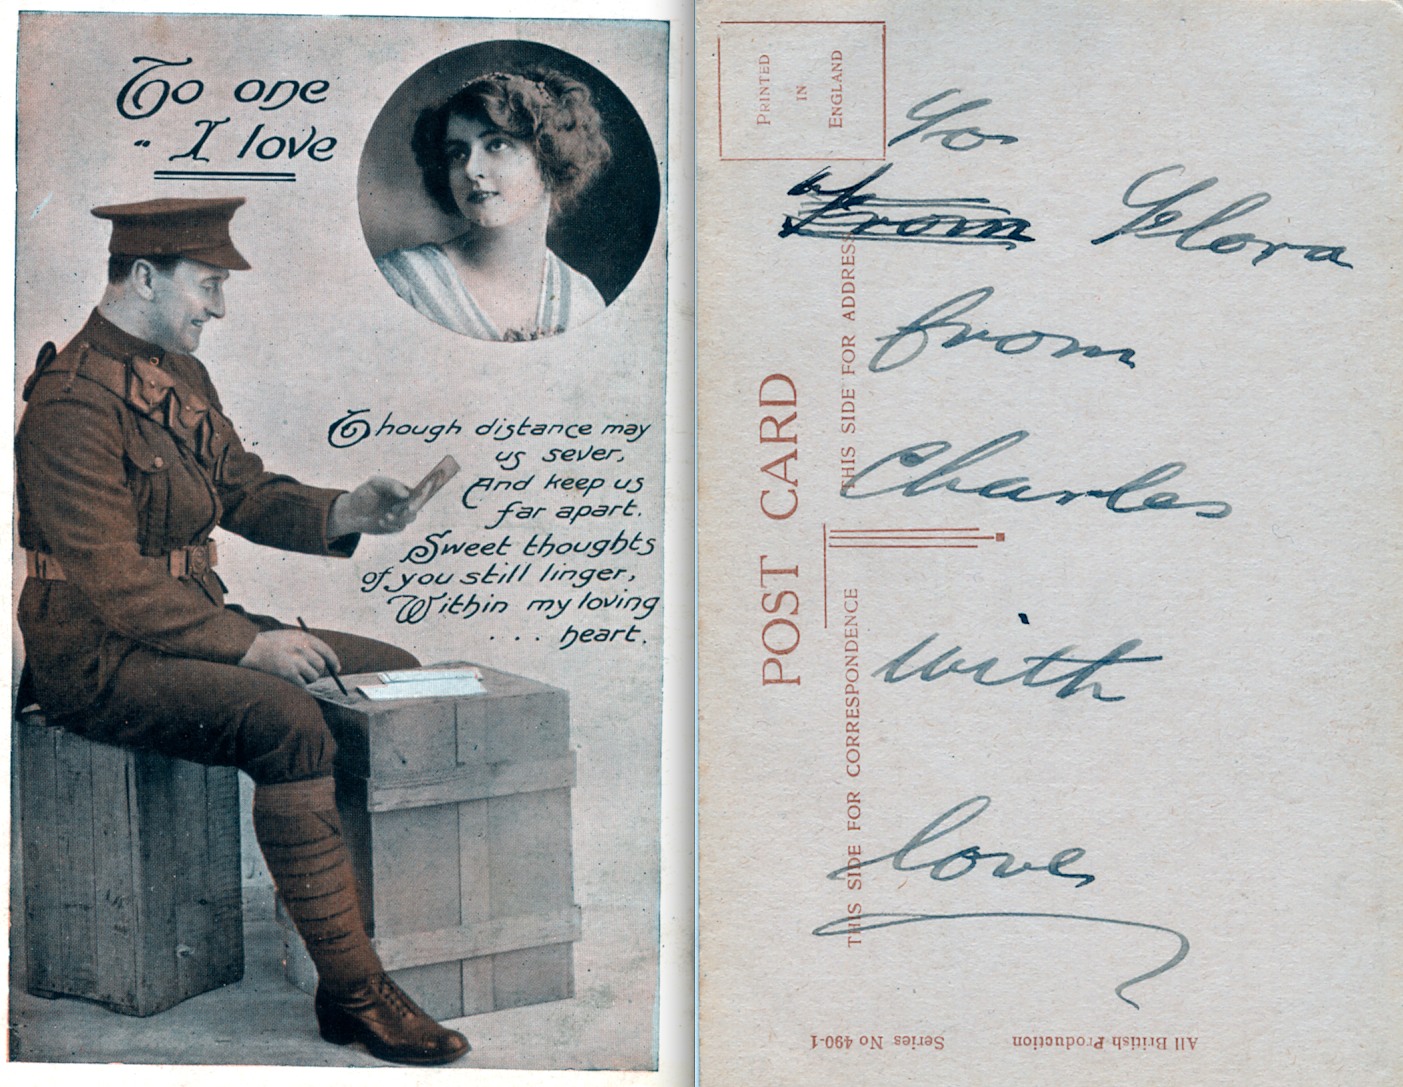 To one
I love
Though distance may
us sever,
And keep us
far apart.
Sweet thoughts
of you still linger,
Within my loving
... heart.
PRINTED
IN
ENGLAND
POST CARD
THIS SIDE FOR ADDRESS
THIS SIDE FOR CORRESPONDENCE
To
From Flora
from
Charles
with
love
All British Production
Series No 490-1